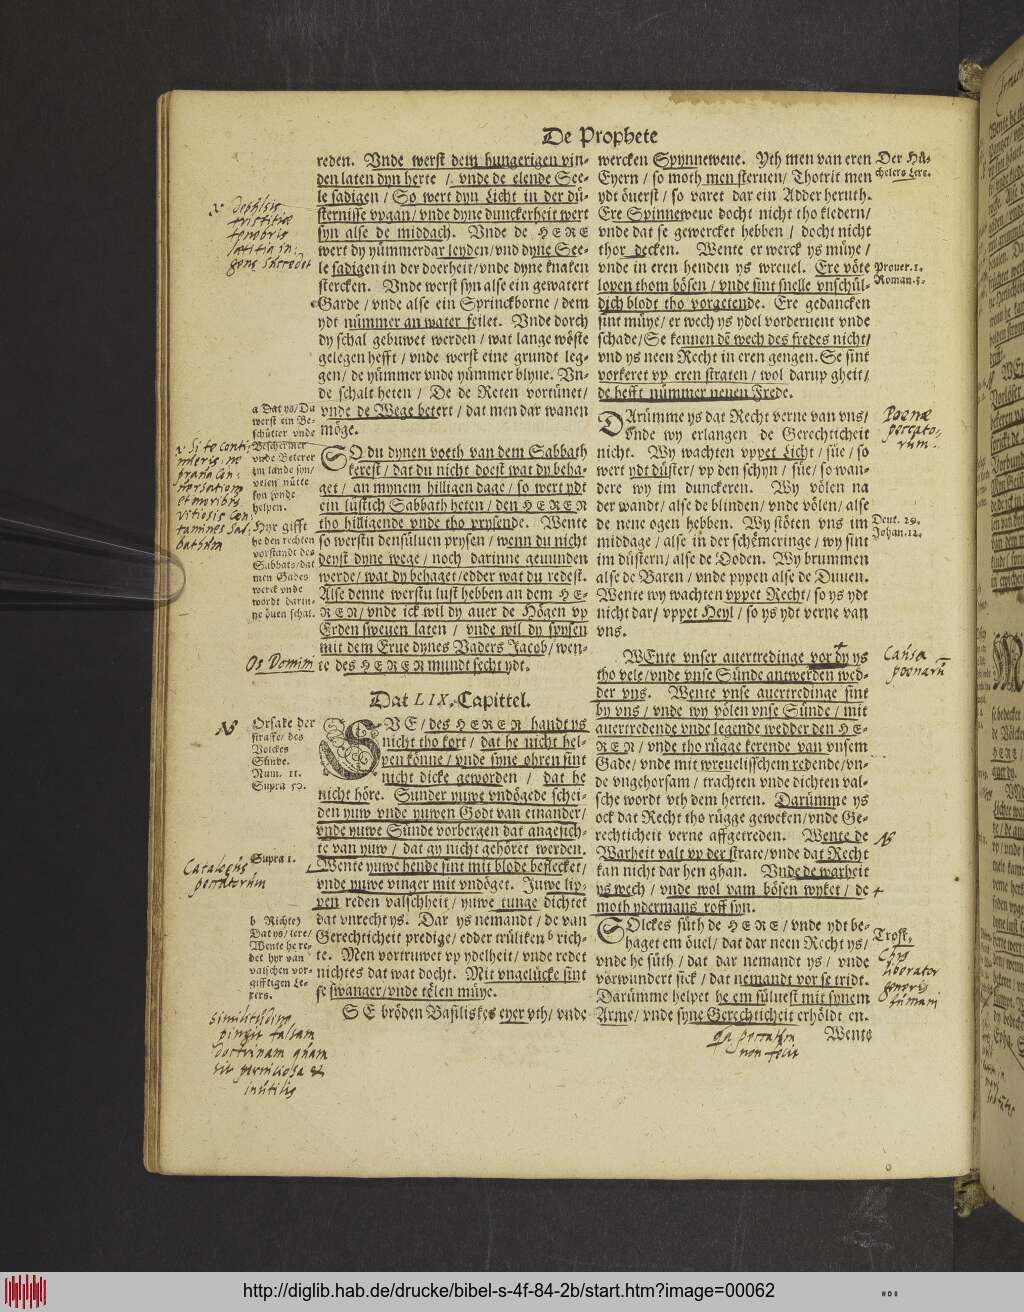 De Prophete
reden. Vnde werst dem hungerigen vin-
den laten dyn herte / vnde de elende See-
le sadigen / So wert dyn Licht in der dü-
sternisse vpgan / vnde dyne dunckerheit wert
syn alse de middach. Vnde de HERE
wert dy yümmerdar leyden / vnd dyne See-
le sadigen in der doerheit / vnde dyne knaken
stercken. Vnde werst syn alse ein gewatert
Garde / vnde alse ein Sprinckborne / dem
ydt nümmer an water feilet. Vnde dorch
dy schal gebuwet werden / wat lange wöste
gelegen hefft / vnde werst eine grundt leg-
gen / de yümmer vnde yümmer blyue. Vn-
de schalt heten / De de Reten vortünet /
vnde de Wege betert / dat men dar wanen
möge.
SO du dynen voeth van dem Sabbath
kerest / dat du nicht doest wat dy beha-
get / an mynem hilligen dage / so wert ydt
ein lüstich Sabbath heten / den HEREN
tho hilligende vnde tho prysende. Wente
so werstu densüluen prysen / wenn du nicht
deyst dyne wege / noch darinne geuunden
werde / wat dy behaget / edder wat du redest.
Alse denne werstu lust hebben an dem HE-
REN / vnde ick wil dy auer de Högen vp
Erden sweuen laten / vnde wil dy spysen
mit dem Erue dynes Vaders Jacob / wen-
te des HEREN mundt secht ydt.
Dat LIX. Capittel.
SVE / des HEREN handt ys
nicht tho kort / dat he nicht hel-
pen könne / vnde syne ohren sint
nicht dicke geworden / dat he
nicht höre. Sunder yuwe vndögede schei-
den yuw vnde yuwen Godt van einander /
vnde yuwe Sünde vorbergen dat angesich-
te van yuw / dat gy nicht gehöret werden.
Wente yuwe hende sint mit blode beflecket /
vnde yuwe vinger mit vndöget. Juwe lip-
pen reden valschheit / yuwe tunge dichtet
dat vnrecht ys. Dar ys nemandt / de van
Gerechticheit predige / edder trüliken b rich-
te. Men vortruwet vp ydelheit / vnde redet
nichtes dat wat docht. Mit vngelücke sint
se swanger / vnde telen müye.
SE bröden Basiliskes eyer vth / vnde
a Dat ys / Du
werst ein Be-
schütter vnde
Beschermer
vnde Beterer
im lande syn /
velen nütte
syn vnde
helpen.
Hyr gifft
he den rechten
vorstandt des
Sabbats / dat
men Gades
werck vnde
wordt darin-
ne öuen schal.
Orsake der
straffe / des
Volckes
Sünde.
Num. 11.
Supra 50.
Supra 1.
b Richte)
Dat ys / lere /
Wente he re-
det hyr van
valschen vor-
gifftigen Le-
rers.
Os Domini
NB
Catalogus
peccatorum
similitudine
pingit falsam
doctrinam quam
sit perniciosa &
inutilis
wercken Spynneweue. Yth men van eren
Eyern / so moth men steruen / Thotrit men
ydt öuerst / so varet dar ein Adder heruth.
Ere Spinneweue docht nicht tho kledern /
vnde dat se gewercket hebben / docht nicht
thor decken. Wente er werck ys müye /
vnde in eren henden ys wreuel. Ere vöte
lopen thom bösen / vnde sint snelle vnschül-
dich blodt tho vorgetende. Ere gedancken
sint müye / er wech ys ydel vorderuent vnde
schade / Se kennen dē wech des fredes nicht /
vnd ys neen Recht in eren gengen. Se sint
vorkeret vp eren straten / wol darup gheit /
de hefft nümmer nenen Frede.
DArümme ys dat Recht verne van vns /
Vnde wy erlangen de Gerechticheit
nicht. Wy wachten vppet Licht / süe / so
wert ydt düster / vp den schyn / süe / so wan-
dere wy im dunckeren. Wy völen na
der wandt / alse de blinden / vnde völen / alse
de nene ogen hebben. Wy stöten vns im
middage / alse in der schēmeringe / wy sint
im düstern / alse de Doden. Wy brummen
alse de Baren / vnde pypen alse de Duuen.
Wente wy wachten vppet Recht / so ys ydt
nicht dar / vppet Heyl / so ys ydt verne van
vns.
WEnte vnser auertredinge vor dy ys
tho vele / vnde vnse Sünde antwerden wed-
der vns. Wente vnse auertredinge sint
by vns / vnde wy völen vnse Sünde / mit
auertredende vnde legende wedder den HE-
REN / vnde tho rügge kerende van vnsem
Gade / vnde mit wreuelisschem redende / vn-
de vngehorsam / trachten vnde dichten val-
sche wordt vth dem herten. Darümme ys
ock dat Recht tho rügge geweken / vnde Ge-
rechticheit verne affgetreden. Wente de
Warheit valt vp der strate / vnde dat Recht
kan nicht dar hen ghan. Vnde de warheit
ys wech / vnde wol vam bösen wyket / de
moth ydermans roff syn.
SOlckes süth de HERE / vnde ydt be-
haget em öuel / dat dar neen Recht ys /
vnde he süth / dat dar nemandt ys / vnde
vorwundert sick / dat nemandt vor se tridt.
Darümme helpet he em süluest mit synem
Arme / vnde syne Gerechticheit erhöldt en.
Wente
Der Hü-
chelers Lere.
Prouer. 1.
Roman. 3.
Poenæ
peccato-
rum.
Deut. 29.
Johan. 12.
Causa
poenarū
NB
Trost.
Chrs
liberator
generis
humani
qa peccatum
non fecit
http://diglib.hab.de/drucke/bibel-s-4f-84-2b/start.htm?image=00062